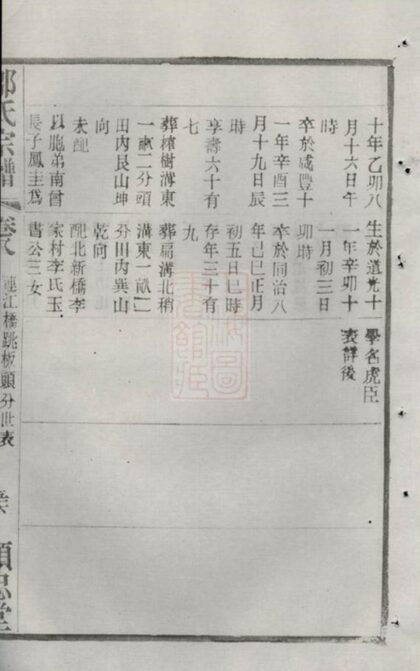 十年乙卯八
月十六日午
時
卒於咸豐十
一年辛酉三
月十九日辰
時
享壽六十有
七
葬樹溝東
一畝二分頭
田內艮山坤
向
未配
以胞弟南
長子鳳主為
生於道光十
一年辛卯十
一月初三日
卯時
卒於同治八
年己巳正月
初五日巳時
存年三十有
九
葬扁溝北稍
溝東一畝二
分田內巽山
乾向
配北新橋李
家村李氏玉
書公三女
學名虎臣
表詳後
氏宗譜
卷八
連江橋跳板頭分世表
堂